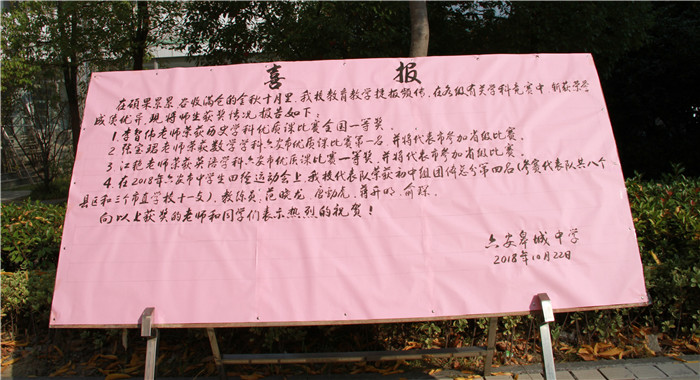 喜 报
在硕果累累、谷收满仓的金秋十月里,我校教育教学捷报频传,在各级有关学科竞赛中 荣
成绩优异,现将师生获奖情况报告如下:
1. 李智伟老师荣获历史学科优质课比赛全国一等奖。
2. 张宝珺老师荣获数学学科六安市优质课比赛第一名,并将代表市参加省级比赛。
3. 汪艳老师荣获英语学科六安市优质课比赛一等奖,并将代表市参加省级比赛。
4. 在2018年六安市中学生田径运动会上,我校代表队荣获初中组团体总分第四名(参赛代表队共八个
县区和三个市直学校十一支)。教练员: 范晓龙、 动虎、蒋开明、俞琼。
向以上获奖的老师和同学们表示热烈的祝贺!
六安皋城中学
2018年10月22日